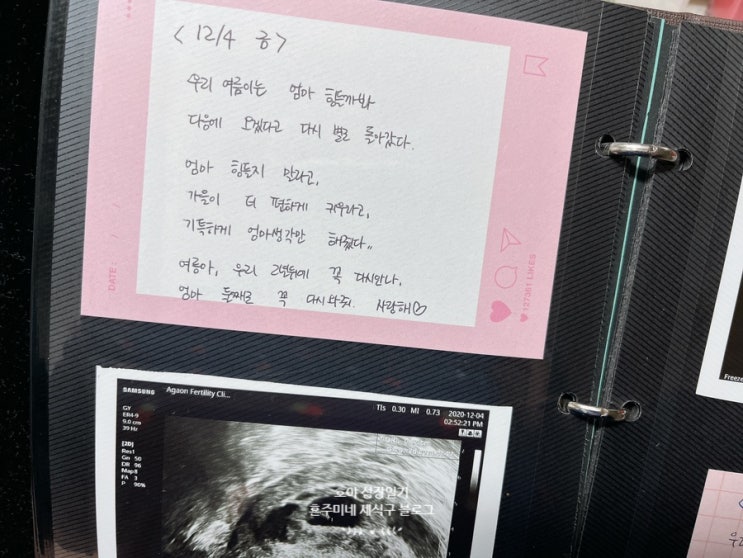 <12/4 금>
우리 여름이는 엄마 힘들까봐
다음에 오겠다고 다시 별로 돌아갔다.
엄마 힘들지 말라고,
가을이 더 편하게 키우라고,
기특하게 엄마생각만 해줬다..
여름아, 우리 2년뒤에 꼭 다시만나,
엄마 둘째로 꼭 다시 와줘. 사랑해♡
DATE :
127361 LIKES
SAMSUNG
Agaon Fertility Cli...
TIs 0.30 MI 0.73 2020-12-04
02:52:21 PM
GY
ER4-9
9.0 cm
39 Hz
[2D]
Res1
Gn 50
DR 96
Map8
FA 3
P 96%
호야 성장일기
혼주미네 세식구 블로그
Freeze
우리